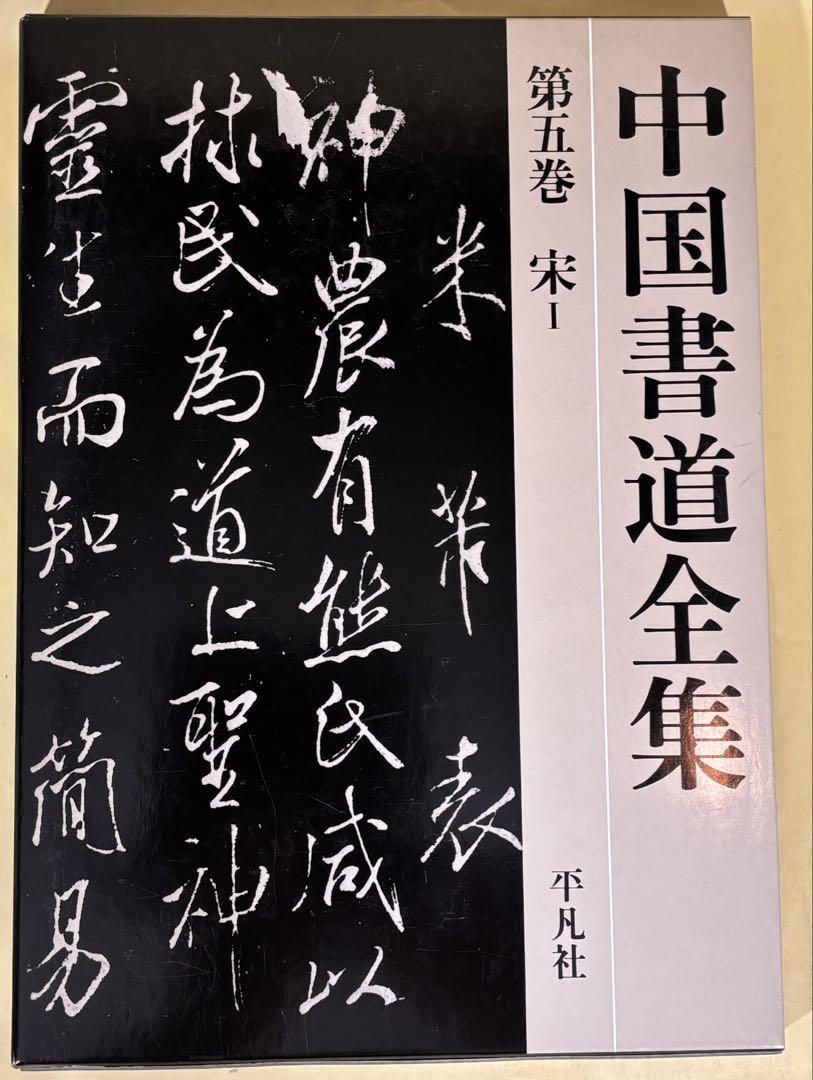 中国書道全集
第五巻 宋I
平凡社
米芾表
神農有熊氏咸以
捄民為道上聖神
靈生而知之簡易